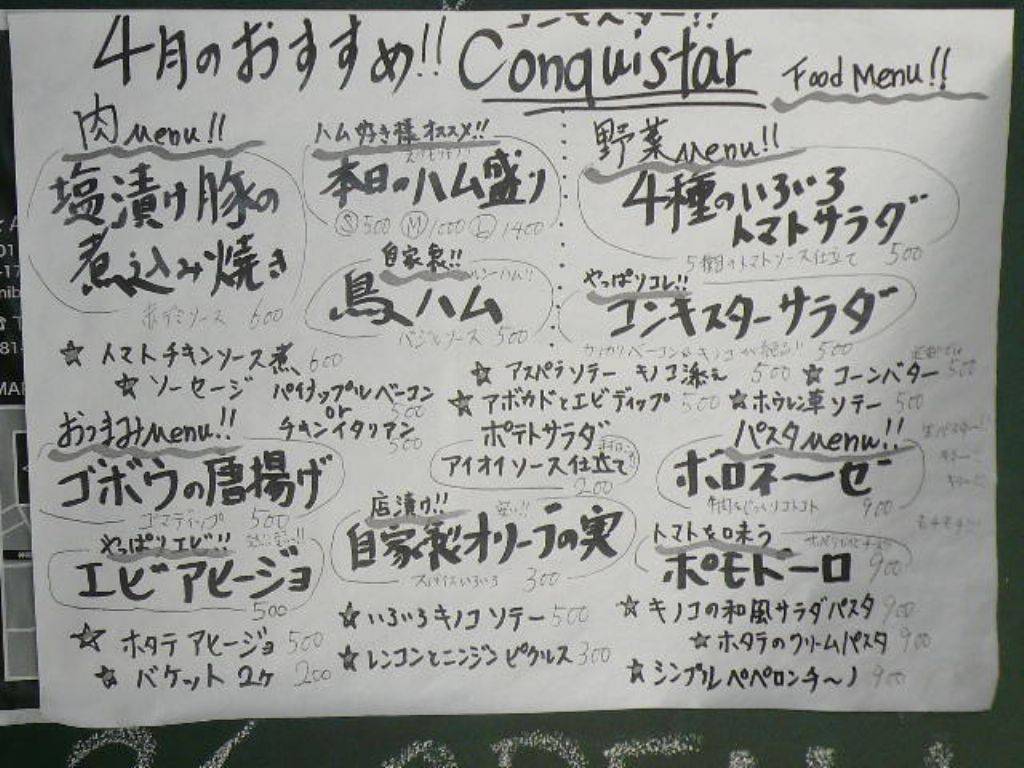 4月のおすすめ!! Conquistar Food Menu!!
肉menu!!
塩漬け豚の
煮込み焼き
ホイミソース 600
☆ トマトチキンソース煮 600
☆ ソーセージ パイナップルベーコン 500
or
チキンイタリアン 500
ハム好き様オススメ!!
本日のハム盛り
S 500 M 1000 L 1400
自家製!!
鳥ハム
バジルソース 500
野菜menu!!
4種のいろいろ
トマトサラダ
5種目のトマトソース仕立て 500
やっぱりコレ!!
コンキスターサラダ
500
☆ アスパラソテー キノコ添え 500
☆ コーンバター 500
☆ アボカドとエビディップ 500
☆ ホウレン草ソテー 500
ポテトサラダ
アイオイソース仕立て
200
おつまみmenu!!
ゴボウの唐揚げ
ゴマディップ 500
やっぱりエビ!!
エビアヒージョ
500
☆ ホタテアヒージョ 500
☆ バケット2ヶ 200
店漬け!!
自家製オリーブの実
スパイスいろいろ 300
☆ いろいろキノコソテー 500
☆ レンコンとニンジンピクルス 300
パスタmenu!!
ボロネ〜ゼ
900
トマトを味う
ポモドーロ
900
☆ キノコの和風サラダパスタ 900
☆ ホタテのクリームパスタ 900
☆ シンプルペペロンチ〜ノ 900
OPEN